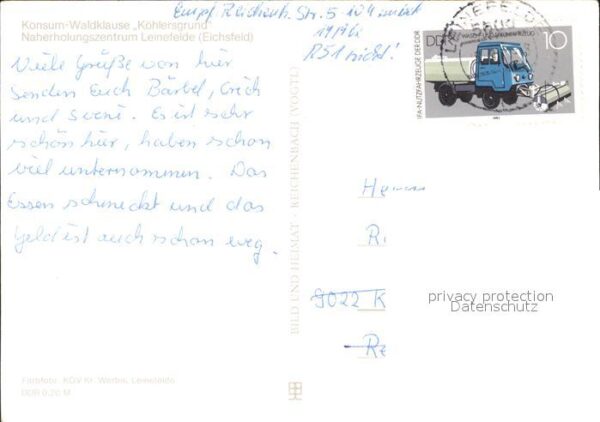 Konsum-Waldklause „Köhlersgrund"
Naherholungszentrum Leinefelde (Eichsfeld)
Viele Grüße von hier
senden Euch Bärbel, Erich
und Sveni. Es ist sehr
schön hier, haben schon
viel unternommen. Das
Essen schmeckt und das
Geld ist auch schon weg.
Farbfoto: KGV Kr. Worbis, Leinefelde
DDR 0,20 M
BILD UND HEIMAT · REICHENBACH (VOGTL)
Empf. Reichenh. Str. 5
R51 nicht!
DDR
10
IFA-NUTZFAHRZEUGE DER DDR
LEINEFELDE
Herrn
R.
9022 K
Re
privacy protection
Datenschutz